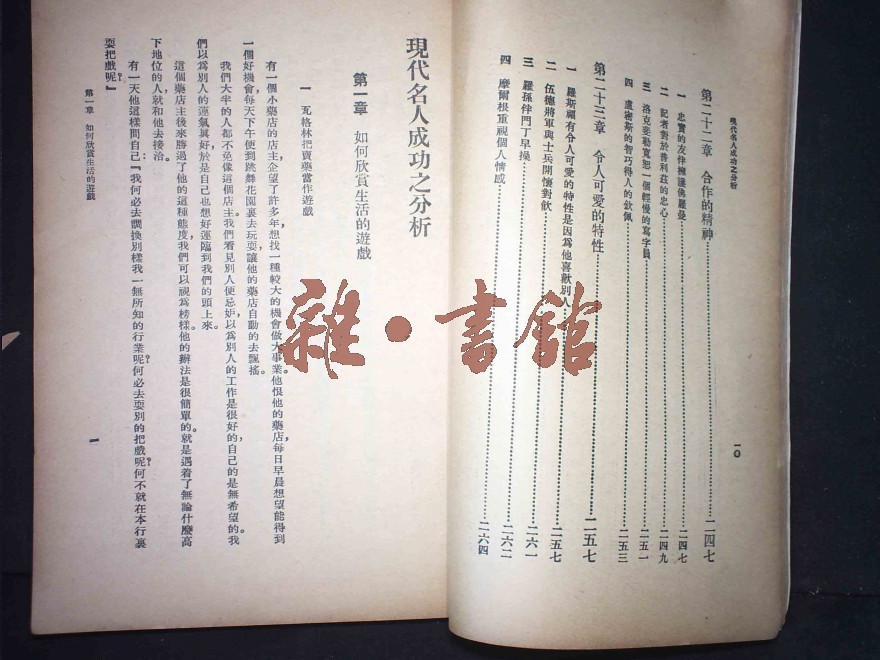 現代名人成功之分析
第二十二章　合作的精神……二四七
一　忠實的友伴擁護佛羅曼……二四七
二　記者對於普利茲的忠心……二四九
三　洛克斐勒寬恕一個輕慢的寫字員……二五一
四　盧密斯的智巧得人的欽佩……二五三
第二十三章　令人可愛的特性……二五七
一　羅斯福有令人可愛的特性是因爲他喜歡別人……二五七
二　伍德將軍與士兵開懷對飲……二六一
三　羅孫伴門丁早操……二六二
四　摩爾根重視個人情感……二六四
一〇
現代名人成功之分析
第一章　如何欣賞生活的遊戲
一　瓦格林把賣藥當作遊戲
有一個小藥店的店主企望了許多年，想找一種較大的機會做大事業。他恨他的藥店，每日早晨想望能得到
一個好機會，每天下午便到跳舞花園裏去玩耍，讓他的藥店自動的去飄搖。
我們大半的人都不免像這個店主。我們看見別人便忌妒，以爲別人的工作是很好的，自己的是無希望的。我
們以爲別人的運氣眞好，於是自己也想好運臨到我們的頭上來。
這個藥店主後來勝過了他的這種態度，我們可以視爲榜樣。他的辦法是很簡單的。就是遇着了無論什麼高
下地位的人，就和他去接洽。
有一天他這樣問自己：『我何必去調換別樣我一無所知的行業呢？何必去耍別的把戲呢？何不就在本行裏
耍把戲呢？』
第一章　如何欣賞生活的遊戲
一
雜·書館